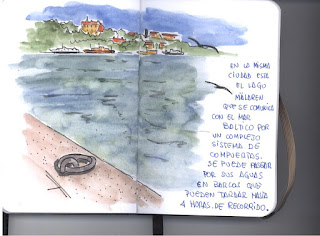 EN LA MISMA
CIUDAD ESTA
EL LAGO
MÄLAREN
QUE SE COMUNICA
CON EL MAR
BALTICO POR
UN COMPLEJO
SISTEMA DE
COMPUERTAS.
SE PUEDE PASEAR
POR SUS AGUAS
EN BARCOS QUE
PUEDEN TARDAR HASTA
4 HORAS DE RECORRIDO.